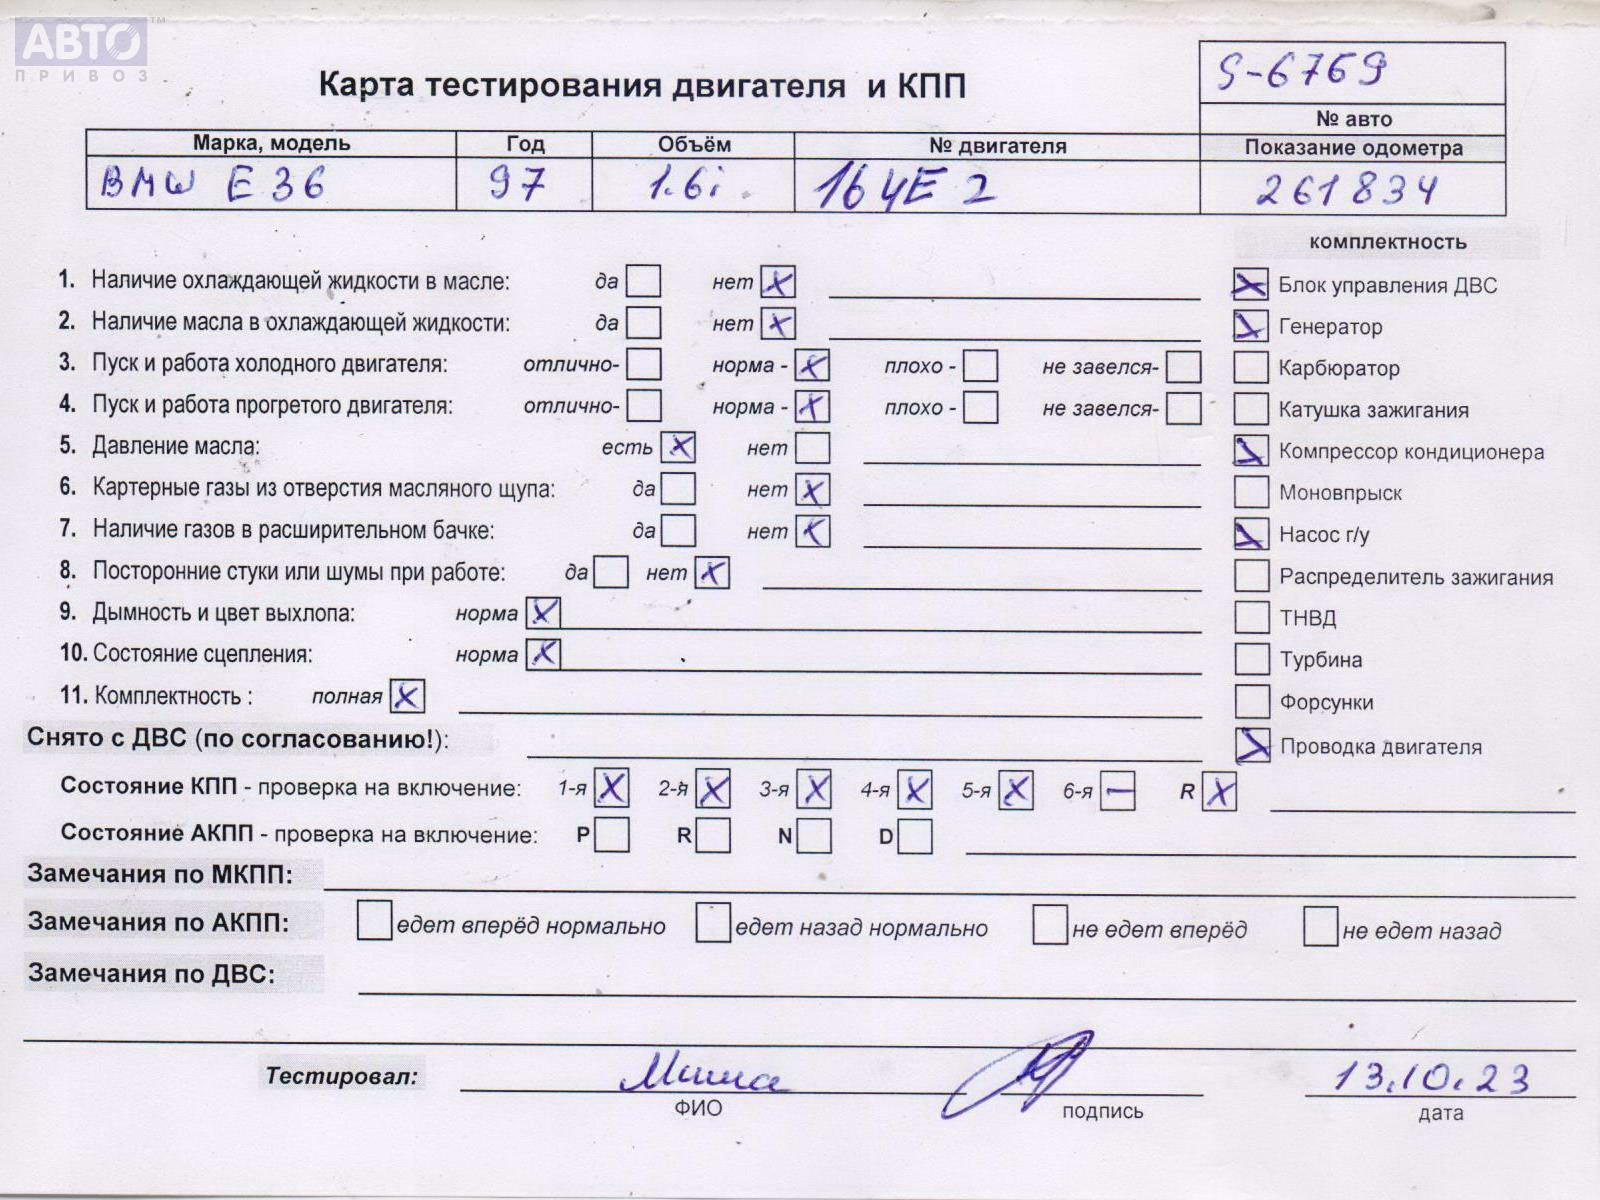 АВТО™
ПРИВОЗ
Карта тестирования двигателя и КПП
S-6769
№ авто
Марка, модель Год Объём № двигателя Показание одометра
BMW E36 97 1.6i 164E2 261834
комплектность
1. Наличие охлаждающей жидкости в масле: да нет X
Блок управления ДВС X
2. Наличие масла в охлаждающей жидкости: да нет X
Генератор X
3. Пуск и работа холодного двигателя: отлично- норма - X плохо - не завелся-
Карбюратор
4. Пуск и работа прогретого двигателя: отлично- норма - X плохо - не завелся-
Катушка зажигания
5. Давление масла: есть X нет
Компрессор кондиционера X
6. Картерные газы из отверстия масляного щупа: да нет X
Моновпрыск
7. Наличие газов в расширительном бачке: да нет X
Насос г/у X
8. Посторонние стуки или шумы при работе: да нет X
Распределитель зажигания
9. Дымность и цвет выхлопа: норма X
ТНВД
10. Состояние сцепления: норма X
Турбина
11. Комплектность : полная X
Форсунки
Снято с ДВС (по согласованию!):
Проводка двигателя X
Состояние КПП - проверка на включение: 1-я X 2-я X 3-я X 4-я X 5-я X 6-я — R X
Состояние АКПП - проверка на включение: P R N D
Замечания по МКПП:
Замечания по АКПП: едет вперёд нормально едет назад нормально не едет вперёд не едет назад
Замечания по ДВС:
Тестировал: Миша 13.10.23
ФИО подпись дата